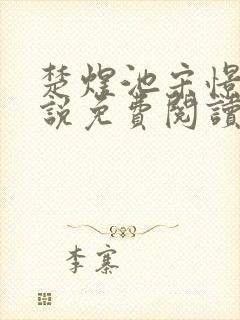 楚煋池宗憬
說免費閱讀
李寨